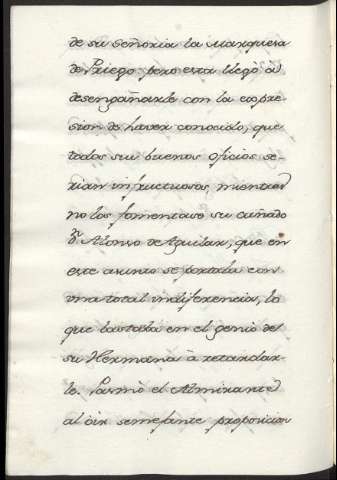 de su Señoria la Marquesa
de Priego: pero esta llegò à
desengañarle con la expre-
sion de haver conocido, que
todos sus buenos oficios se-
rian infructuosos, mientras
no los fomentase su cuñado
Dn. Alonso de Aguilar, que en
este asunto se portaba con
una total indiferencia, lo
que bastaba en el genio de
su Hermana à retardar-
le. Pasmò el Almirante
al oir semejante proposicion